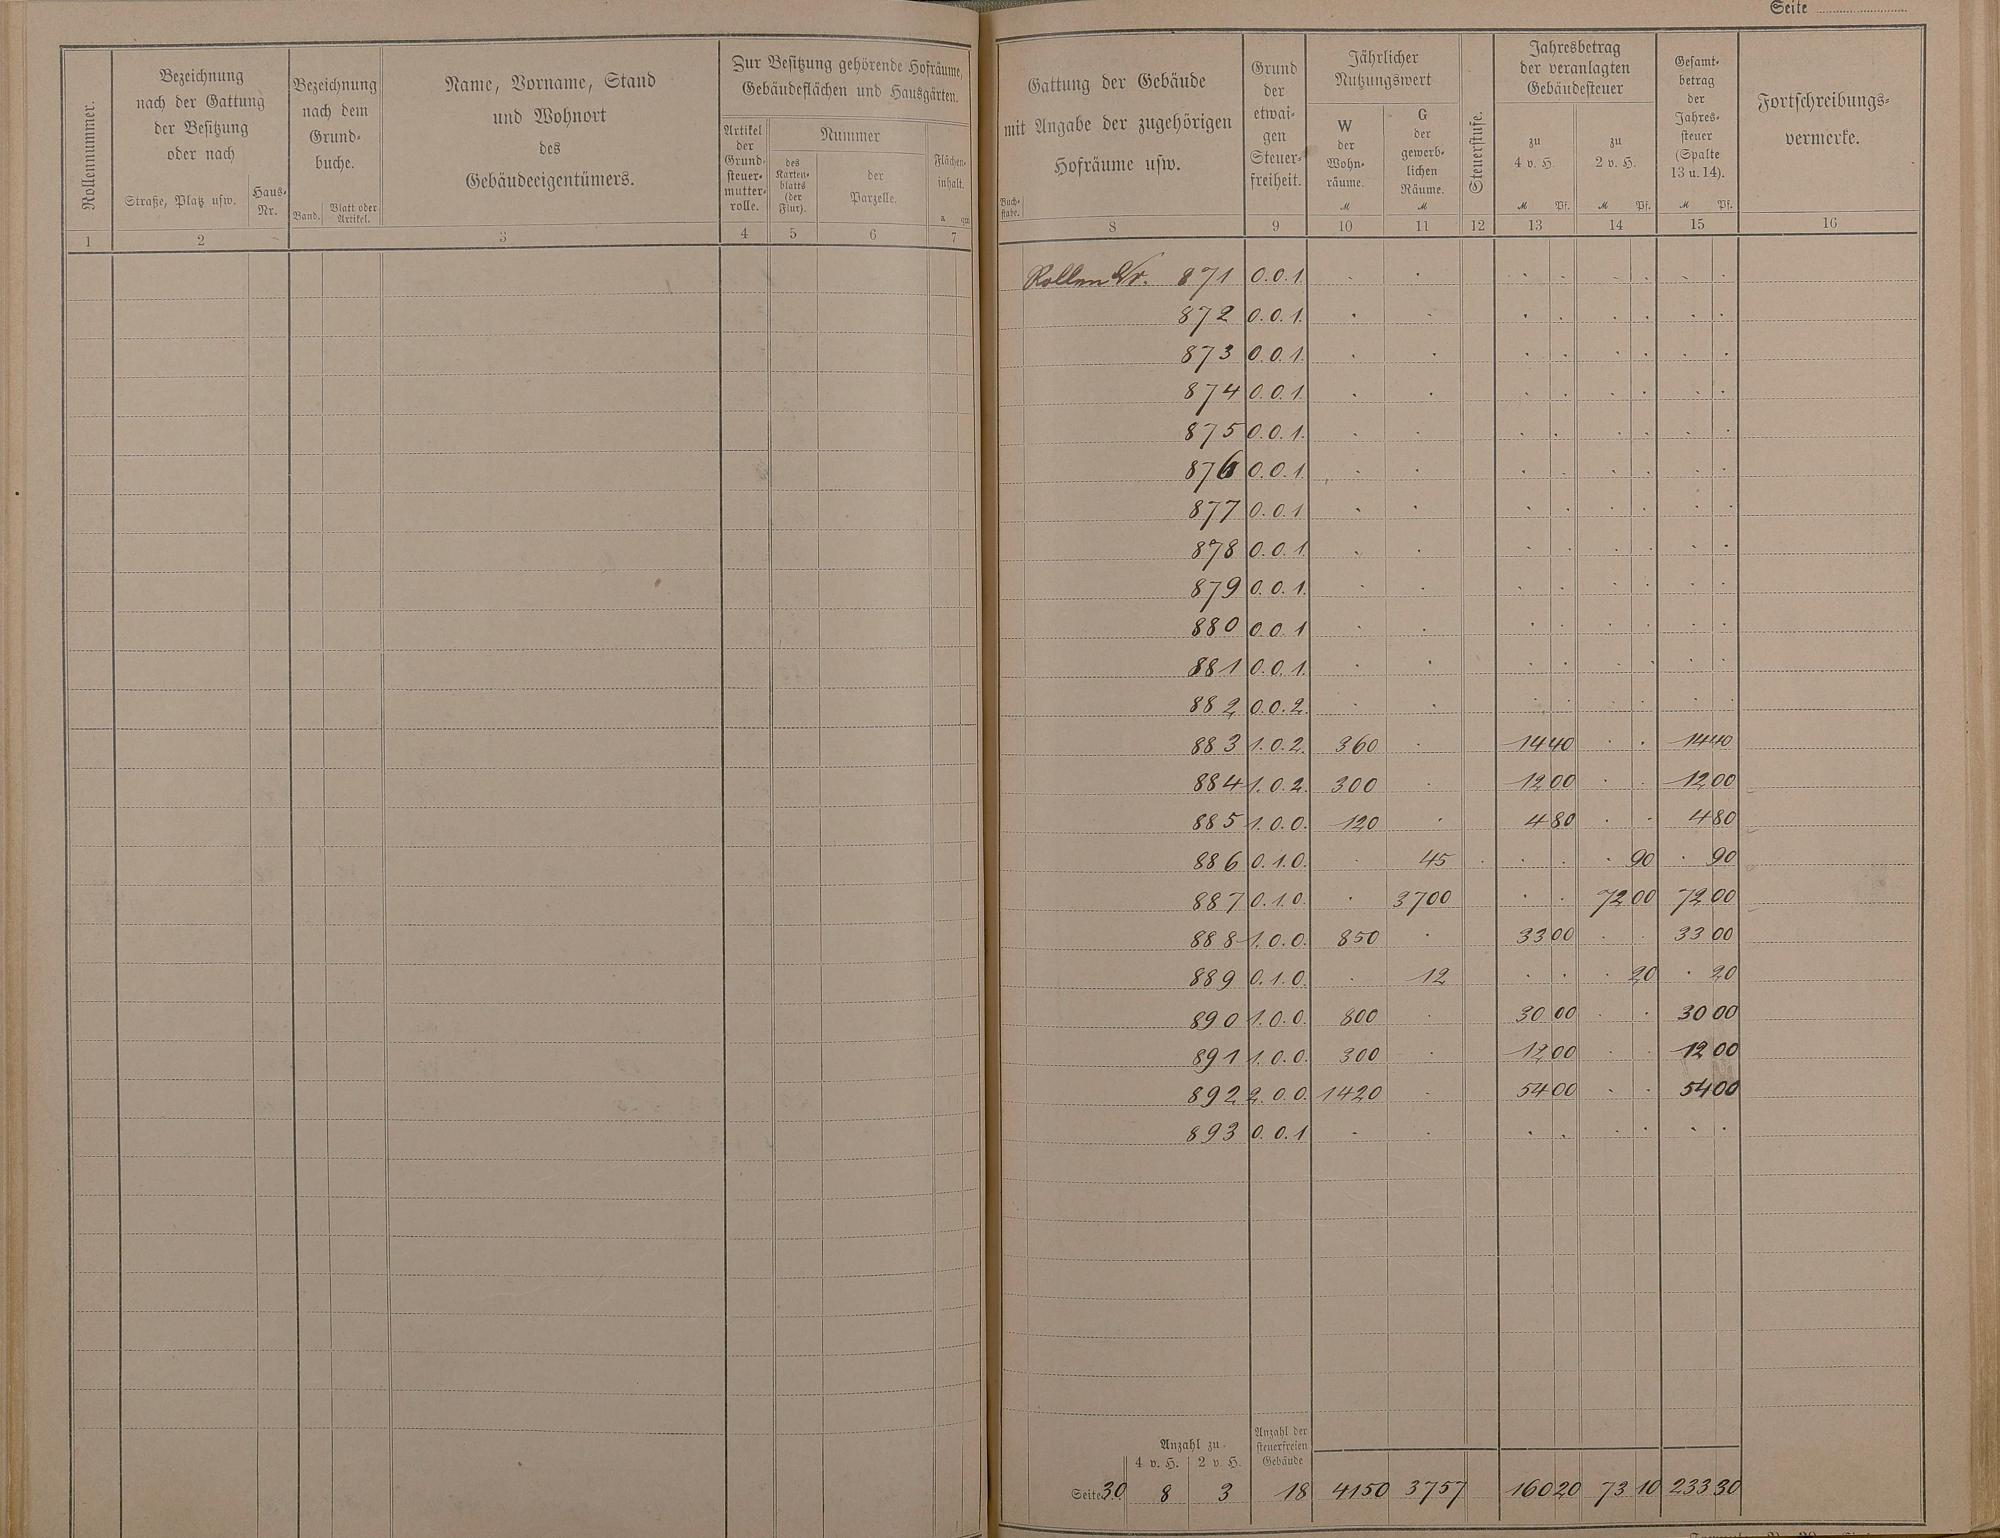 Seite
Rollennummer.
Bezeichnung
nach der Gattung
der Besitzung
oder nach
Straße, Platz usw.
Haus-
Nr.
Bezeichnung
nach dem
Grund-
buche.
Band.
Blatt oder
Artikel.
Name, Vorname, Stand
und Wohnort
des
Gebäudeeigentümers.
Zur Besitzung gehörende Hofräume,
Gebäudeflächen und Hausgärten.
Artikel
der
Grund-
steuer-
mutter-
rolle.
Nummer
des
Karten-
blatts
(der
Flur).
der
Parzelle.
Flächen-
inhalt.
a qm
1 2 3 4 5 6 7
Gattung der Gebäude
mit Angabe der zugehörigen
Hofräume usw.
Buch-
stabe.
Grund
der
etwai-
gen
Steuer-
freiheit.
Jährlicher
Nutzungswert
W
der
Wohn-
räume.
M
G
der
gewerb-
lichen
Räume.
M
Steuerstufe.
Jahresbetrag
der veranlagten
Gebäudesteuer
zu
4 v. H.
M Pf.
zu
2 v. H.
M Pf.
Gesamt-
betrag
der
Jahres-
steuer
(Spalte
13 u. 14).
M Pf.
Fortschreibungs-
vermerke.
8 9 10 11 12 13 14 15 16
Rollen Nr. 871 0.0.1. . . . . . . . .
872 0.0.1. . . . . . . . .
873 0.0.1. . . . . . . . .
874 0.0.1. . . . . . . . .
875 0.0.1. . . . . . . . .
876 0.0.1. . . . . . . . .
877 0.0.1 . . . . . . . .
878 0.0.1. . . . . . . . .
879 0.0.1. . . . . . . . .
880 0.0.1 . . . . . . . .
881 0.0.1. . . . . . . . .
882 0.0.2. . . . . . . . .
883 1.0.2. 360 . 14 40 . . 14 40
884 1.0.2. 300 . 12 00 . . 12 00
885 1.0.0. 120 . 4 80 . . 4 80
886 0.1.0. . 45 . . . . 90 . 90
887 0.1.0. . 3700 . . 72 00 72 00
888 1.0.0. 850 . 33 00 . . 33 00
889 0.1.0. . 12 . . . 20 . 20
890 1.0.0. 800 . 30 00 . . 30 00
891 1.0.0. 300 . 12 00 . . 12 00
892 2.0.0. 1420 . 54 00 . . 54 00
893 0.0.1 . . . . . . . .
Anzahl zu
4 v. H. 2 v. H.
Anzahl der
steuerfreien
Gebäude
Seite 30 8 3 18 4150 3757 160 20 73 10 233 30